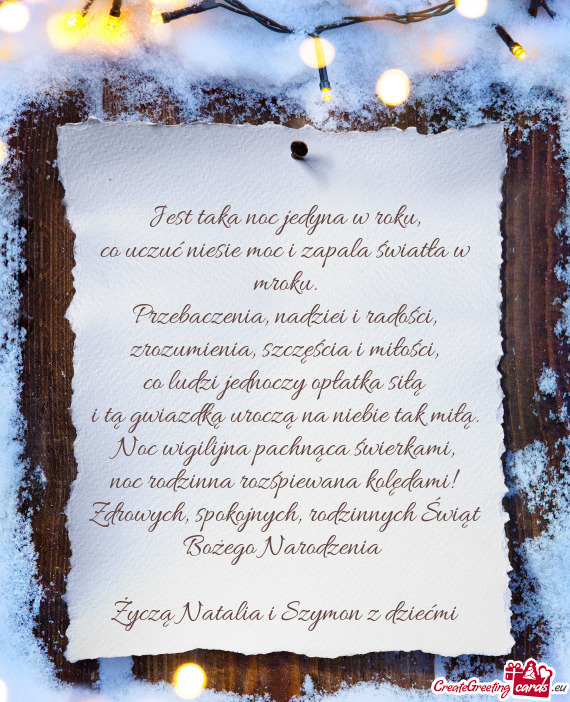 Jest taka noc jedyna w roku,
co uczuć niesie moc i zapala światła w
mroku.
Przebaczenia, nadziei i radości,
zrozumienia, szczęścia i miłości,
co ludzi jednoczy opłatka siłą
i tą gwiazdką uroczą na niebie tak miłą.
Noc wigilijna pachnąca świerkami,
noc rodzinna rozśpiewana kolędami!
Zdrowych, spokojnych, rodzinnych Świąt
Bożego Narodzenia
Życzą Natalia i Szymon z dziećmi
CreateGreeting cards .eu